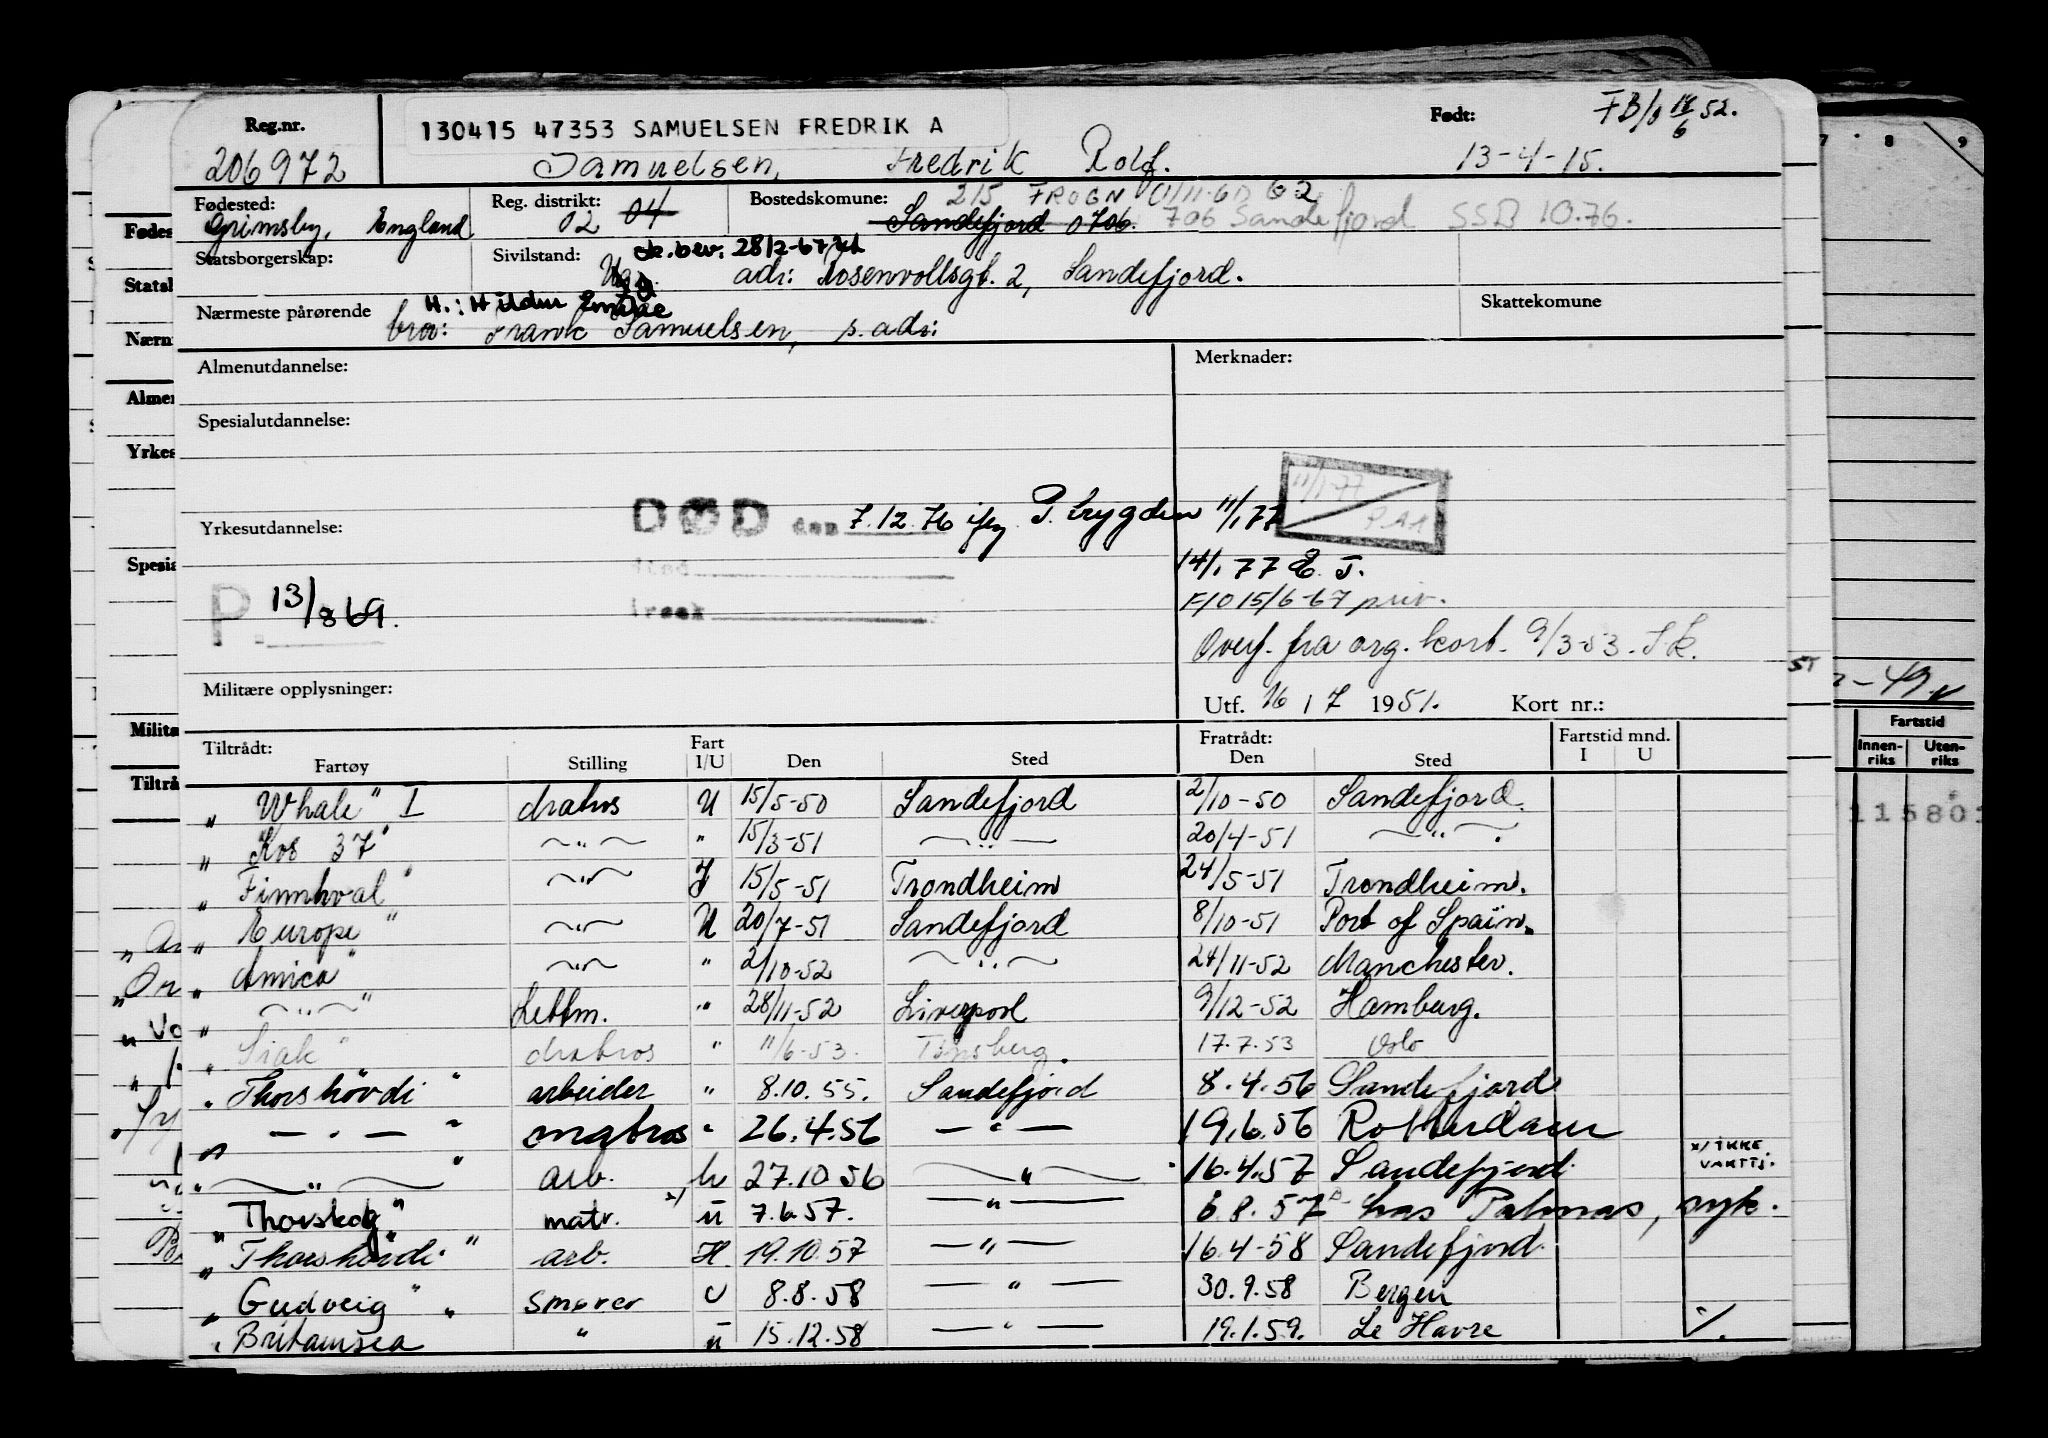 FB/8 17/6 52.
Reg.nr. 130415 47353 SAMUELSEN FREDRIK A Født:
206972 Samuelsen, Fredrik Rolf. 13-4-15.
Fødested: Reg. distrikt: Bostedskommune: 215 FROGN
Grimsby, England 02 04 Sandefjord 0706. 706 Sandefjord SSB 10.76.
Statsborgerskap: Sivilstand: sk.bev: 28/2-67
Ug. adr: Rosenvollsgt. 2, Sandefjord.
Nærmeste pårørende H.: Hildur Skattekomune
bror: Frank Samuelsen, s. adr:
Almenutdannelse: Merknader:
Spesialutdannelse:
11/1-77
Yrkesutdannelse: DØD den 7.12.76 P. trygden 11/1 77
14/1 77 E. J.
sted
P. 13/8 69. F10 15/6-67 priv.
Overf. fra org. kort. 9/3-53.
Militære opplysninger: Utf. 16 / 7 1951. Kort nr.:
Tiltrådt: Fart Fratrådt: Fartstid mnd.
Fartøy Stilling I/U Den Sted Den Sted I U
" Whale" I dekksgutt U 15/5-50 Sandefjord 2/10-50 Sandefjord.
" Kos 37" —"— " 15/3-51 —"— 20/4-51 —"—.
" Finnhval" —"— I 15/5-51 Trondheim 24/5-51 Trondheim.
" Europe" —"— U 20/7-51 Sandefjord 8/10-51 Port of Spain.
" Amica" —"— " 2/10-52 —"— 24/11-52 Manchester.
" —"—" Lettm. " 28/11-52 Liverpool 9/12-52 Hamburg.
" Siak" " 11/6-53. Tønsberg. 17.7.53 Oslo
" Thorshövdi" arbeider " 8.10.55. Sandefjord 8.4.56 Sandefjord
" —"—" " 26.4.56 —"— 19.6.56 Rotterdam
" —"—" arb. h 27.10 56 —"— 16.4.57 Sandefjord. x/ IKKE VAKTTJ.
" Thorskog" matr. x/ u 7.6.57. —"— 6.8.57 Las Palmas, syk.
" Thorshövdi" arb. H 19.10.57 —"— 16.4-58 Sandefjord.
" Gudveig" smører U 8.8.58 —"— 30.9.58 Bergen
" Britamsea " u 15.12.58 —"— 19.1.59. Le Havre ./.
7 8 9
Fødes
Statsl
Nærn
Almer
Yrkes
Spesia
Milita
Tiltrå
-49
Fartstid
Innenriks Utenriks
115801